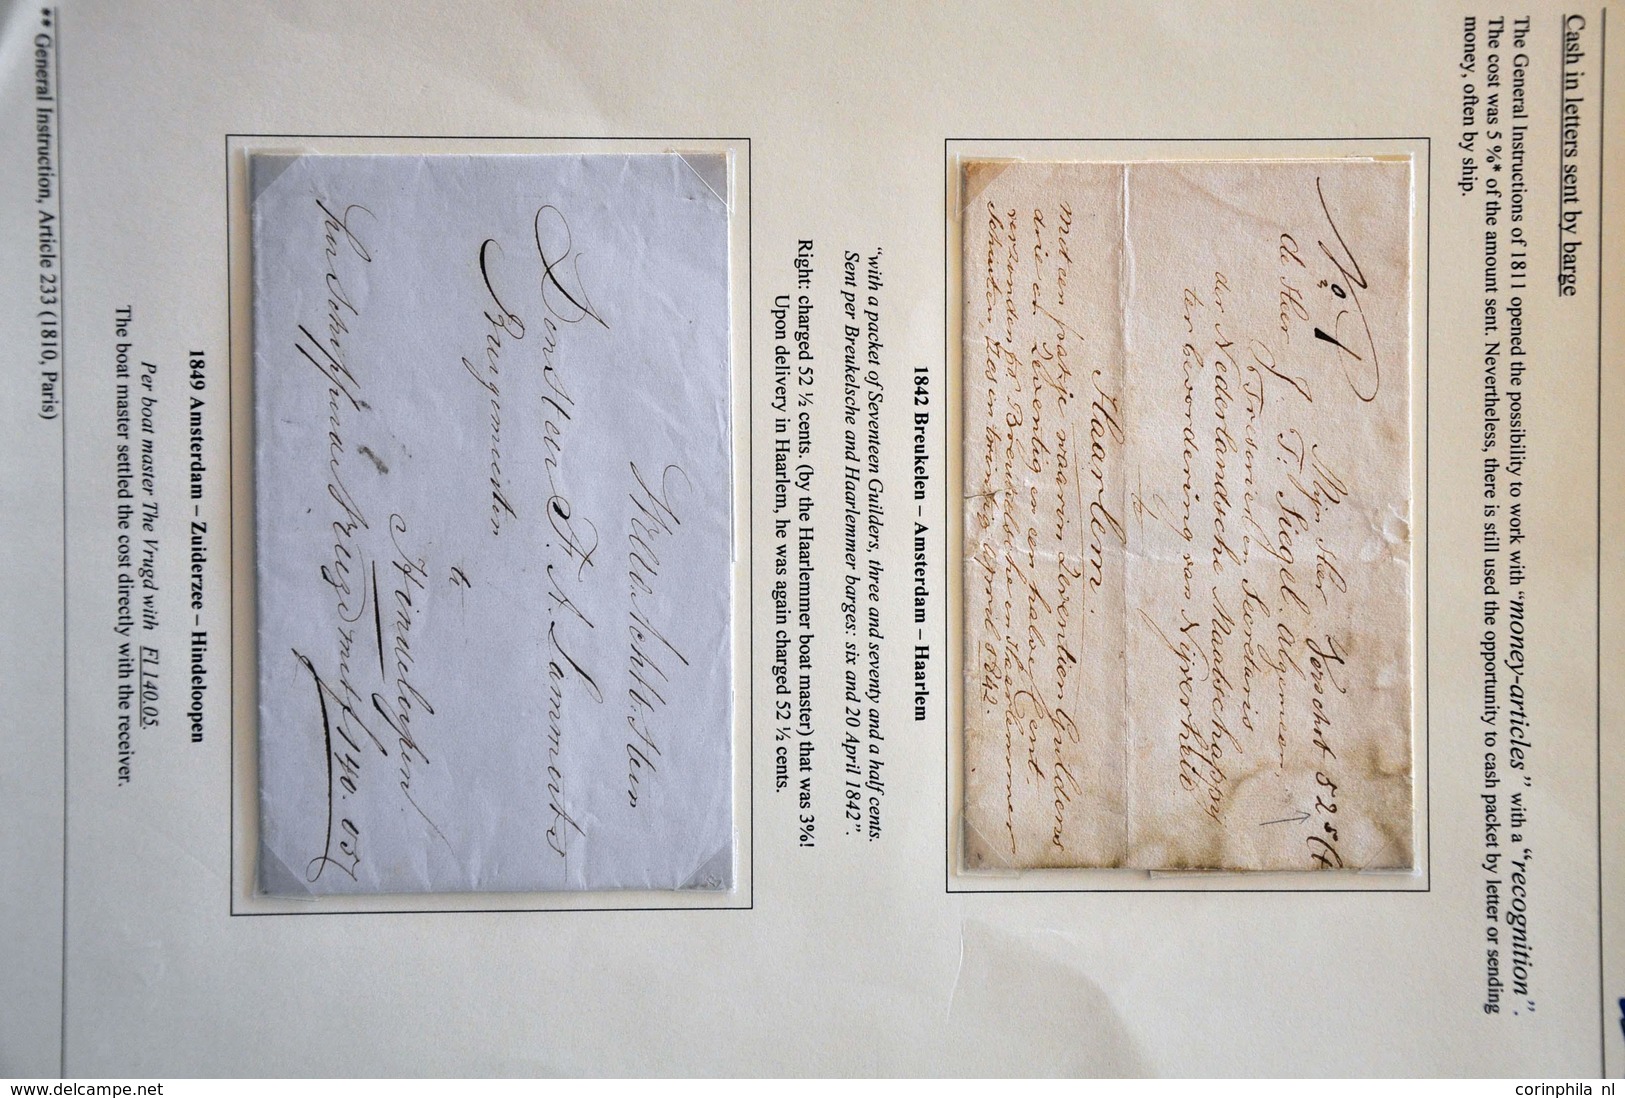 Cash in letters sent by barge
The General Instructions of 1811 opened the possibility to work with "money-articles" with a "recognition".
The cost was 5 %* of the amount sent. Nevertheless, there is still used the opportunity to cash packet by letter or sending
money, often by ship.
No 1
Mijn Heer
de Heer J. T. Siegel. Algemeen
der Nederlandsche Maatschappy
ter bevordering van Nijverheid
te
Haarlem.
met een pakje waarin Zeventien Guldens
drie en Zeventig en een halve Cent.
verzonden pr Breukelsche en Haarlemmer
Schuiten zes en twintig April 1842.
1842 Breukelen – Amsterdam – Haarlem
"with a packet of Seventeen Guilders, three and seventy and a half cents.
Sent per Breukelsche and Haarlemmer barges: six and 20 April 1842".
Right: charged 52 ½ cents. (by the Haarlemmer boat master) that was 3%!
Upon delivery in Haarlem, he was again charged 52 ½ cents.
Den Heer
Burgemeister
te
Hindelopen.
140.05
1849 Amsterdam – Zuiderzee – Hindeloopen
Per boat master The Vrugd with Fl 140.05.
The boat master settled the cost directly with the receiver.
** General Instruction, Article 233 (1810, Paris)
www.delcampe.net
corinphila nl